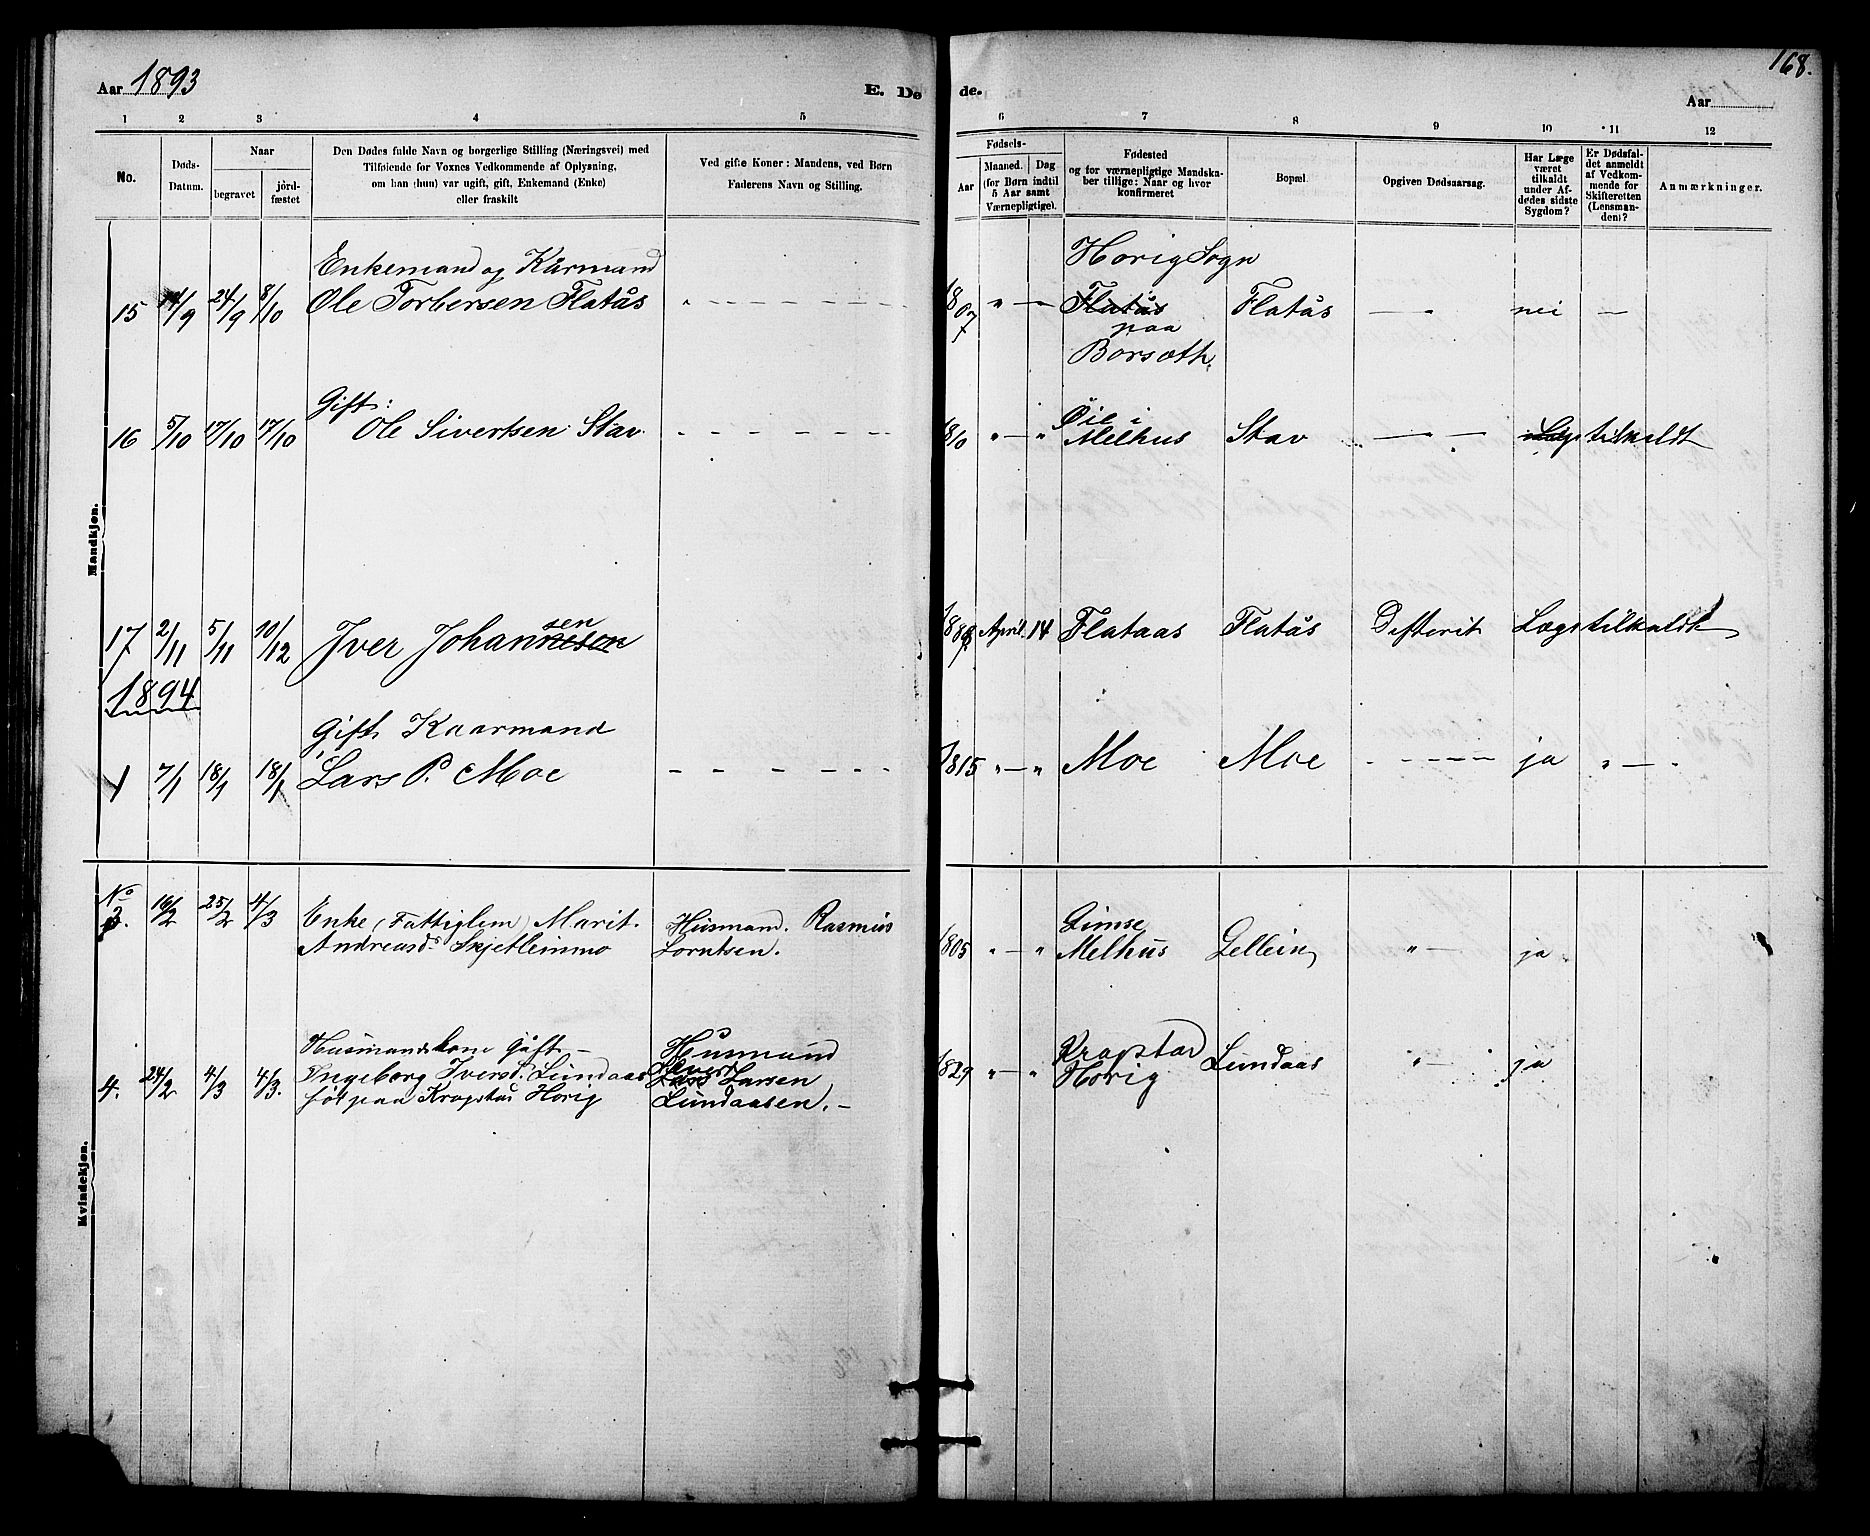 Aar 1893
E. Dø
de.
168.
Aar
1 2 3 4 5 6 7 8 9 10 11 12
No.
Døds-
Datum.
Naar
begravet
jord-
fæstet
Den Dødes fulde Navn og borgerlige Stilling (Næringsvei) med
Tilføiende for Voxnes Vedkommende af Oplysning,
om han (hun) var ugift, gift, Enkemand (Enke)
eller fraskilt
Ved gifte Koner: Mandens, ved Børn
Faderens Navn og Stilling.
Fødsels-
Aar
Maaned. Dag
(for Børn indtil
5 Aar samt
Værnepligtige).
Fødested
og for værnepligtige Mandska-
ber tillige: Naar og hvor
konfirmeret
Bopæl.
Opgiven Dødsaarsag.
Har Læge
været
tilkaldt
under Af-
dødes sidste
Sygdom?
Er Dødsfal-
det anmeldt
af Vedkom-
mende for
Skifteretten
(Lensman-
den)?
Anmærkninger.
Mandkjøn.
Enkemand og Kårmand Horig Sogn
15 14/9 24/9 8/10 Ole Torbersen Flatås " - - - - - 1807 " — Flatås Flatås — " — nei —
paa
Borsæth.
Gift:
16 5/10 17/10 17/10 Ole Sivertsen Stav - - - - - 1810 " — " Øie i
Melhus Stav — - — Læge tilkaldt
17 2/11 5/11 10/12 Iver Johannesen sen April 14 Flataas Flatås Difterit Læge tilkaldt
1894
Gift Kaarmand
1 7/1 18/1 18/1 Lars P. Moe - - - - - - 1815 " — " Moe Moe - - - - - ja " — -
Kvindekjøn.
No Gimse
3. 16/2 25/2 4/3 Enke (Fattiglem) Marit. Husmand. Rasmus 1805 " — " Melhus Gellein " — ja
Andreasd. Skjetleinmo Lorntsen.
Husmandskone Gift — Husmand Kragstad
4. 24/2 4/3 4/3. Ingeborg Iversd. Lundaas Sivert
Lars Larsen 1829 " — " Horig Lundaas " — ja
föt paa Kragstad Horig Lundaasen. —